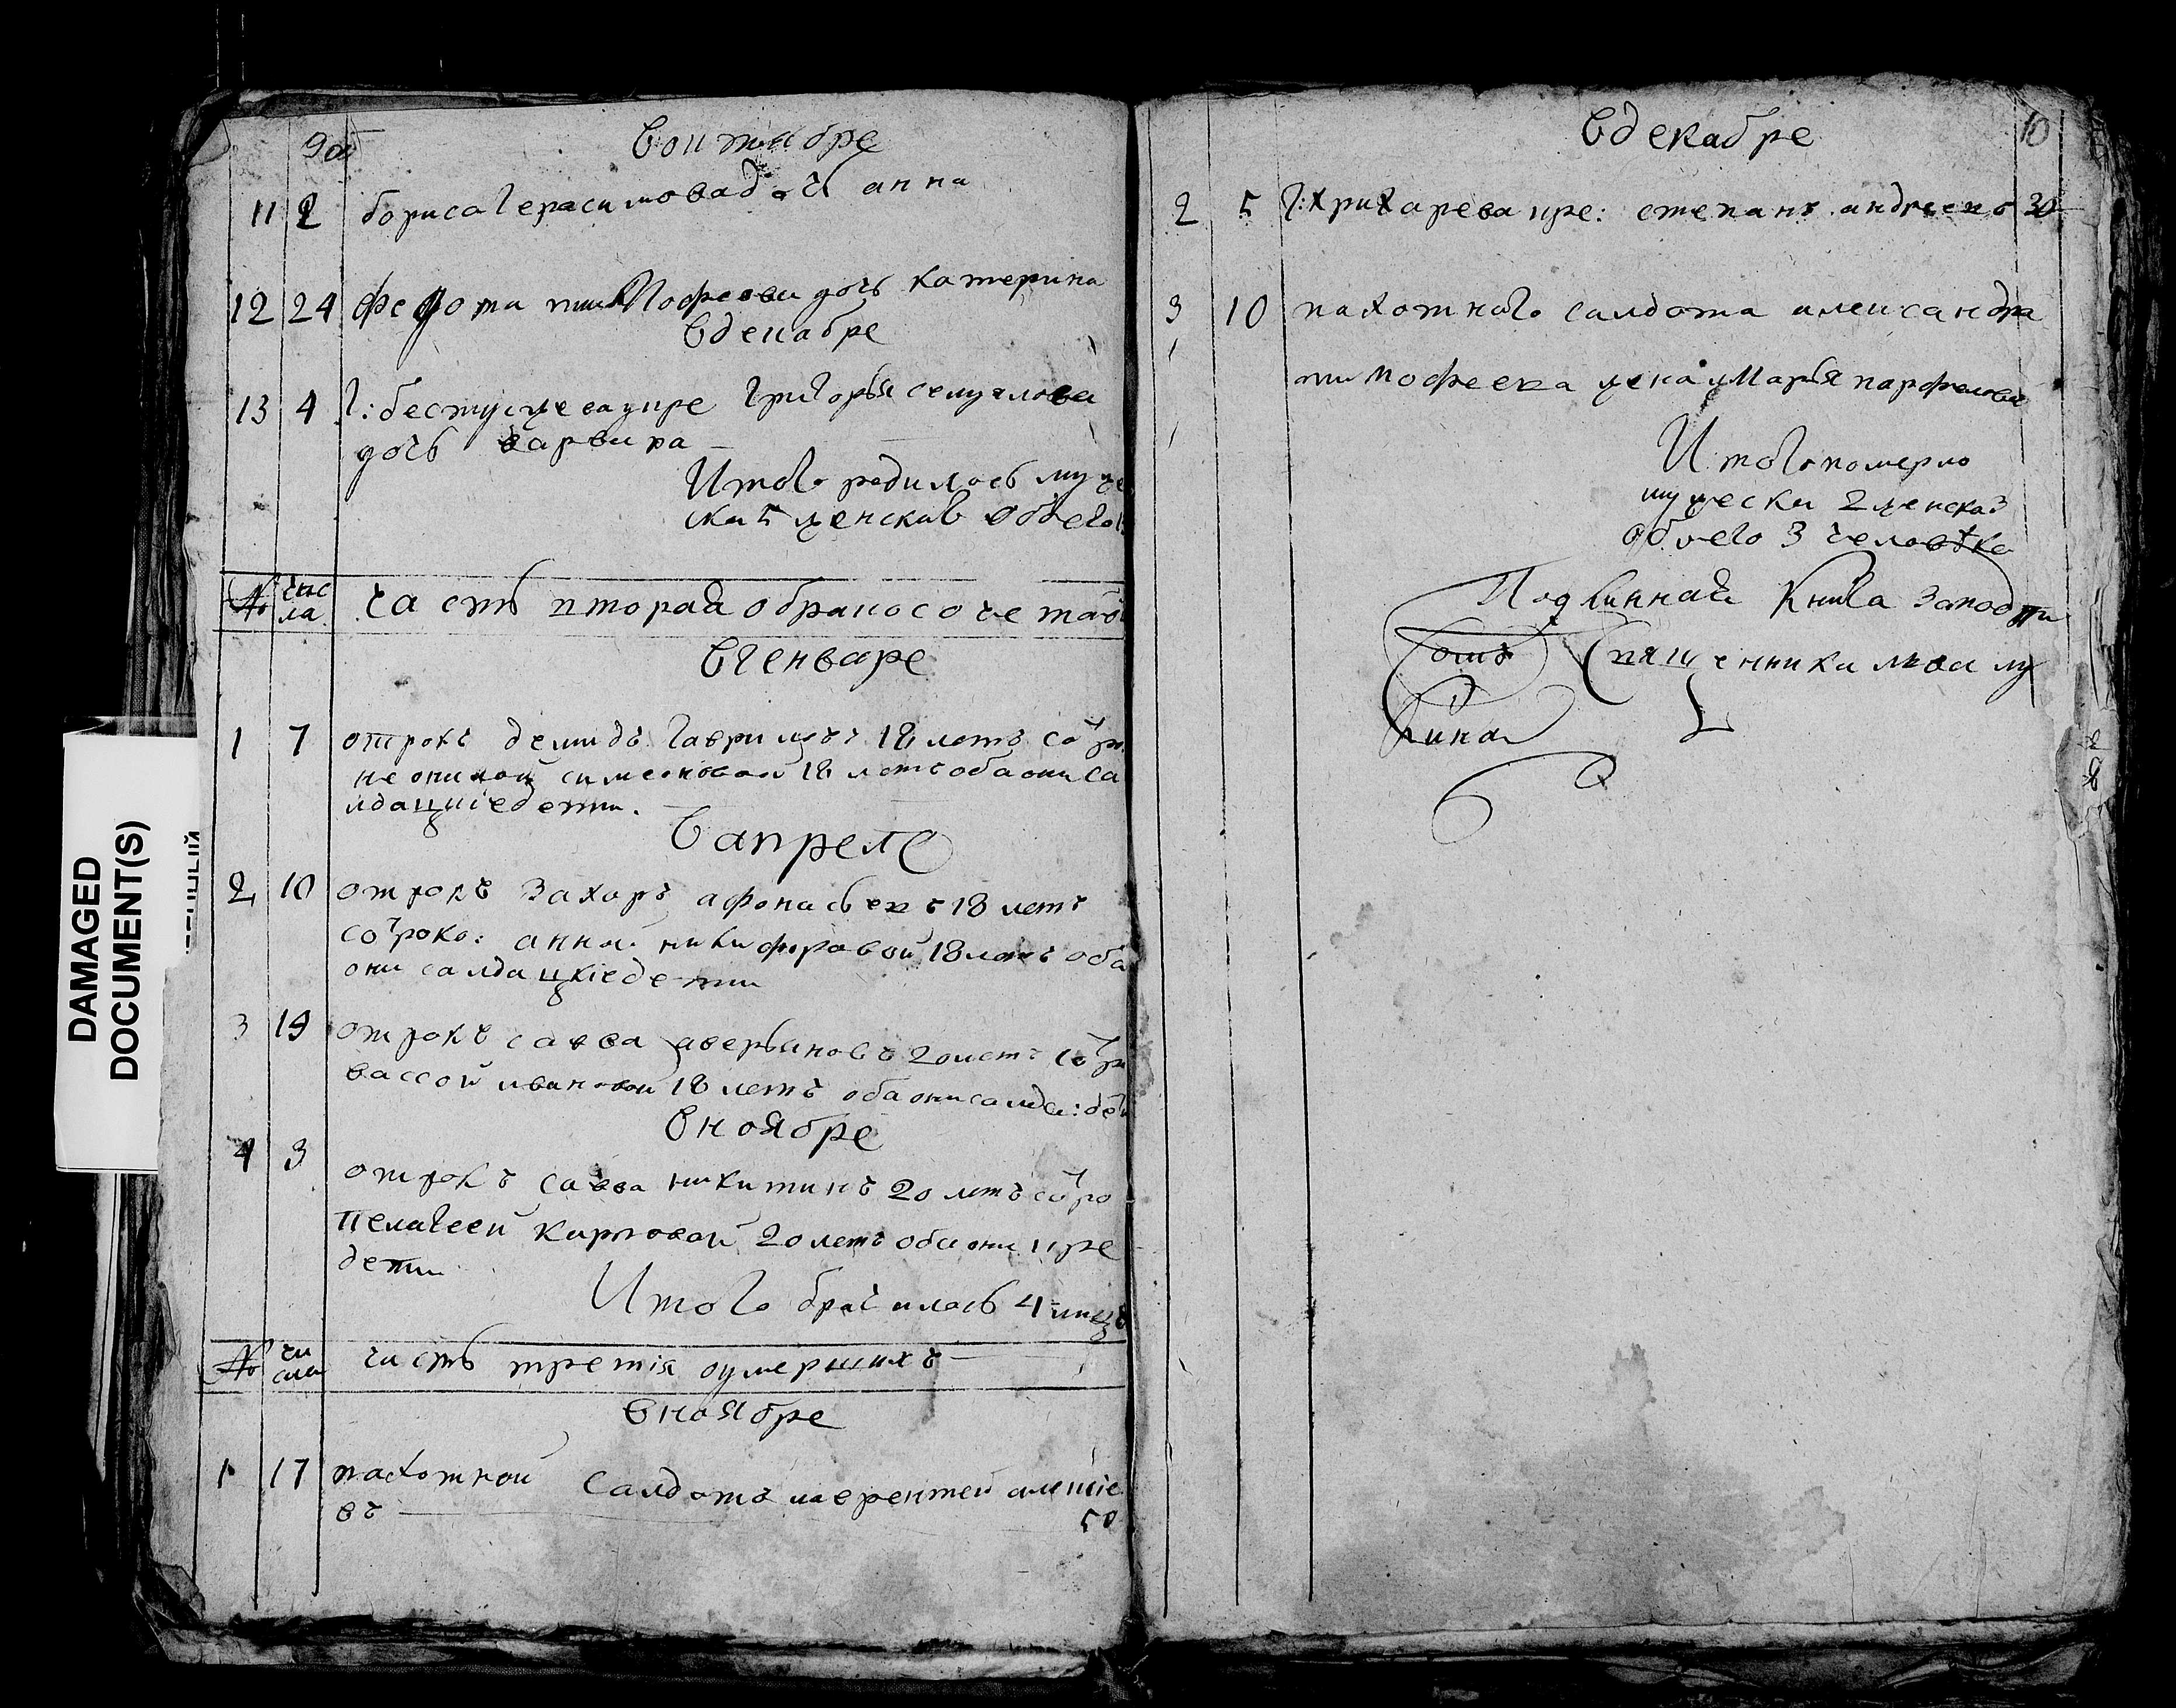 9об
В октябре
11 2 бориса герасимова дочь анна
12 24 федота тимофеева дочь катерина
В декабре
13 4 г: бестужева кре григорья самуилова
дочь варвара
Итого родилось муже
ска 5 женска 8 обоего
№ числа часть вторая о бракосочета
В генваре
1 7 отрокъ демидъ гаврилавъ 18 летъ со отро
симеоновой 18 летъ оба они са
лдацкие дети.
В апреле
2 10 отрокъ захаръ афонасьевъ 18 летъ
со отроко: анной никифоровой 18 летъ оба
они салдацкие дети
3 19 отрокъ савва аверьяновъ 20 летъ со отро
вассой ивановой 18 летъ оба они салда: дети
В ноябре
4 3 отрокъ савва никитинъ 20 летъ со отро
пелагеей карповой 20 летъ оба они кре
дети
Итого брачилось 4 лицъ
№ числа часть третiя о умершихъ
В ноябре
1 17 пахотной салдатъ лаврентей алексiе
въ 50
DAMAGED
DOCUMENT(S)
10
В декабре
2 5 кре: степанъ андреевъ 30
3 10 пахотнаго салдата александра
тимофеева жена Марья парфенова
Итого померло
мужеска 2 женска
обоего 3 человѣка
Подлинная книга за подпи
сомъ священника льва лу
кина